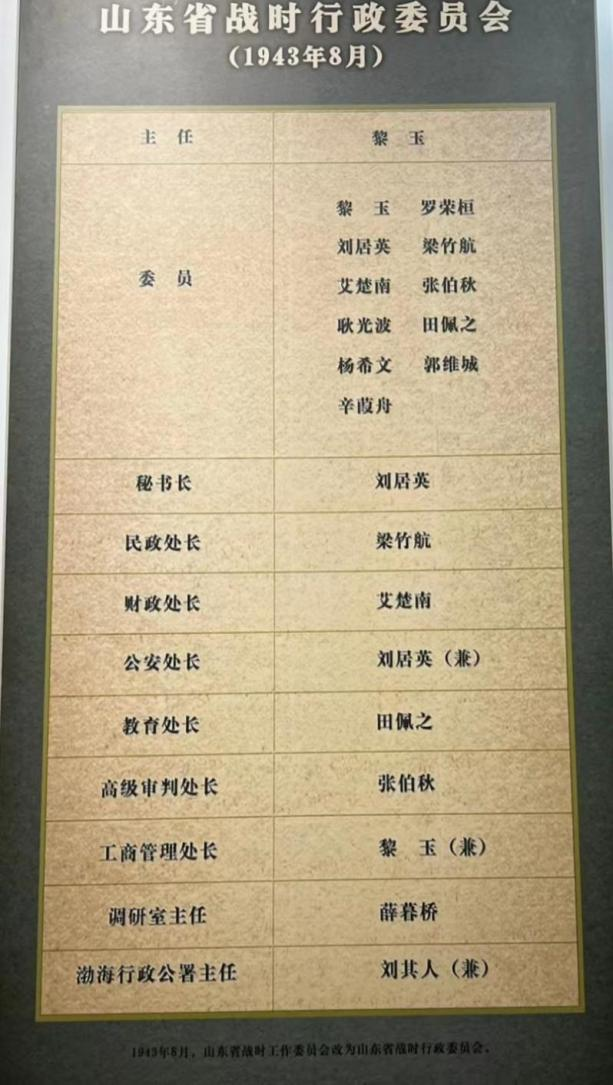 山东省战时行政委员会
(1943年8月)
主 任 黎 玉
委 员
黎 玉 罗荣桓
刘居英 梁竹航
艾楚南 张伯秋
耿光波 田佩之
杨希文 郭维城
辛葭舟
秘书长 刘居英
民政处长 梁竹航
财政处长 艾楚南
公安处长 刘居英（兼）
教育处长 田佩之
高级审判处长 张伯秋
工商管理处长 黎 玉（兼）
调研室主任 薛暮桥
渤海行政公署主任 刘其人（兼）
1943年8月，山东省战时工作委员会改为山东省战时行政委员会。